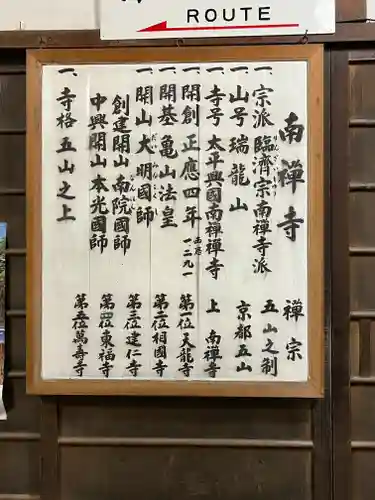 ROUTE
南禪寺
一、宗派 臨濟宗南禪寺派
一、山号 瑞龍山
一、寺号 太平興國南禪禪寺
一、開創 正應四年 西暦一二九一
一、開基 亀山法皇
一、開山 大明國師
創建開山 南院國師
中興開山 本光國師
一、寺格 五山之上
禪宗
五山之制
京都五山
上 南禪寺
第一位 天龍寺
第二位 相國寺
第三位 建仁寺
第四位 東福寺
第五位 萬壽寺